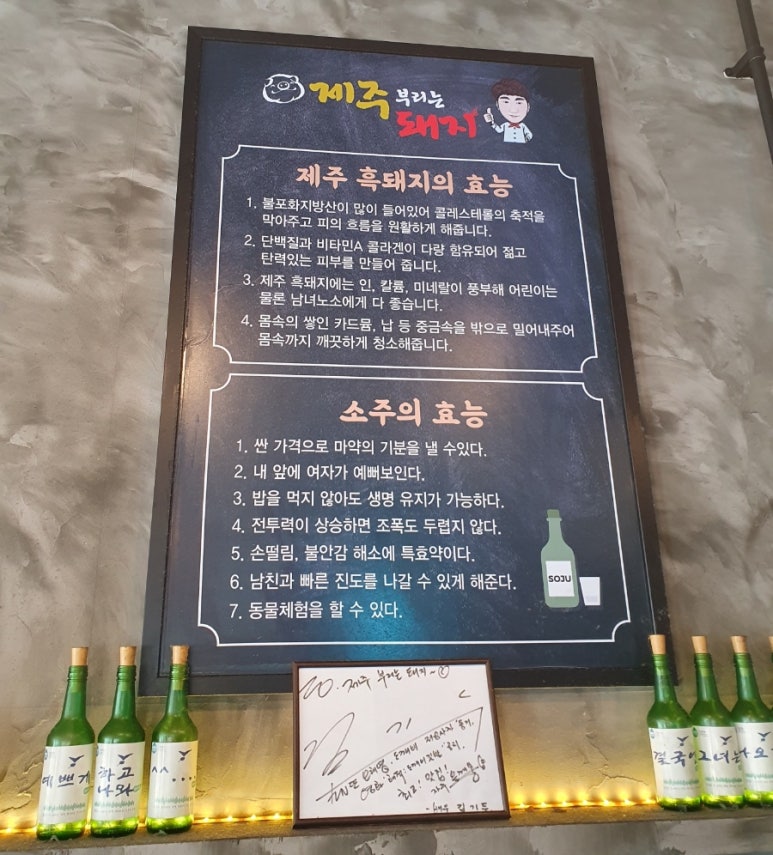 제주 부리는
돼지
제주 흑돼지의 효능
1. 불포화지방산이 많이 들어있어 콜레스테롤의 축적을
막아주고 피의 흐름을 원활하게 해줍니다.
2. 단백질과 비타민A 콜라겐이 다량 함유되어 젊고
탄력있는 피부를 만들어 줍니다.
3. 제주 흑돼지에는 인, 칼륨, 미네랄이 풍부해 어린이는
물론 남녀노소에게 다 좋습니다.
4. 몸속의 쌓인 카드뮴, 납 등 중금속을 밖으로 밀어내주어
몸속까지 깨끗하게 청소해줍니다.
소주의 효능
1. 싼 가격으로 마약의 기분을 낼 수있다.
2. 내 앞에 여자가 예뻐보인다.
3. 밥을 먹지 않아도 생명 유지가 가능하다.
4. 전투력이 상승하면 조폭도 두렵지 않다.
5. 손떨림, 불안감 해소에 특효약이다.
6. 남친과 빠른 진도를 나갈 수 있게 해준다.
7. 동물체험을 할 수 있다.
SOJU
제주 부리는 돼지~
예쁘게
하고
나와
^^...